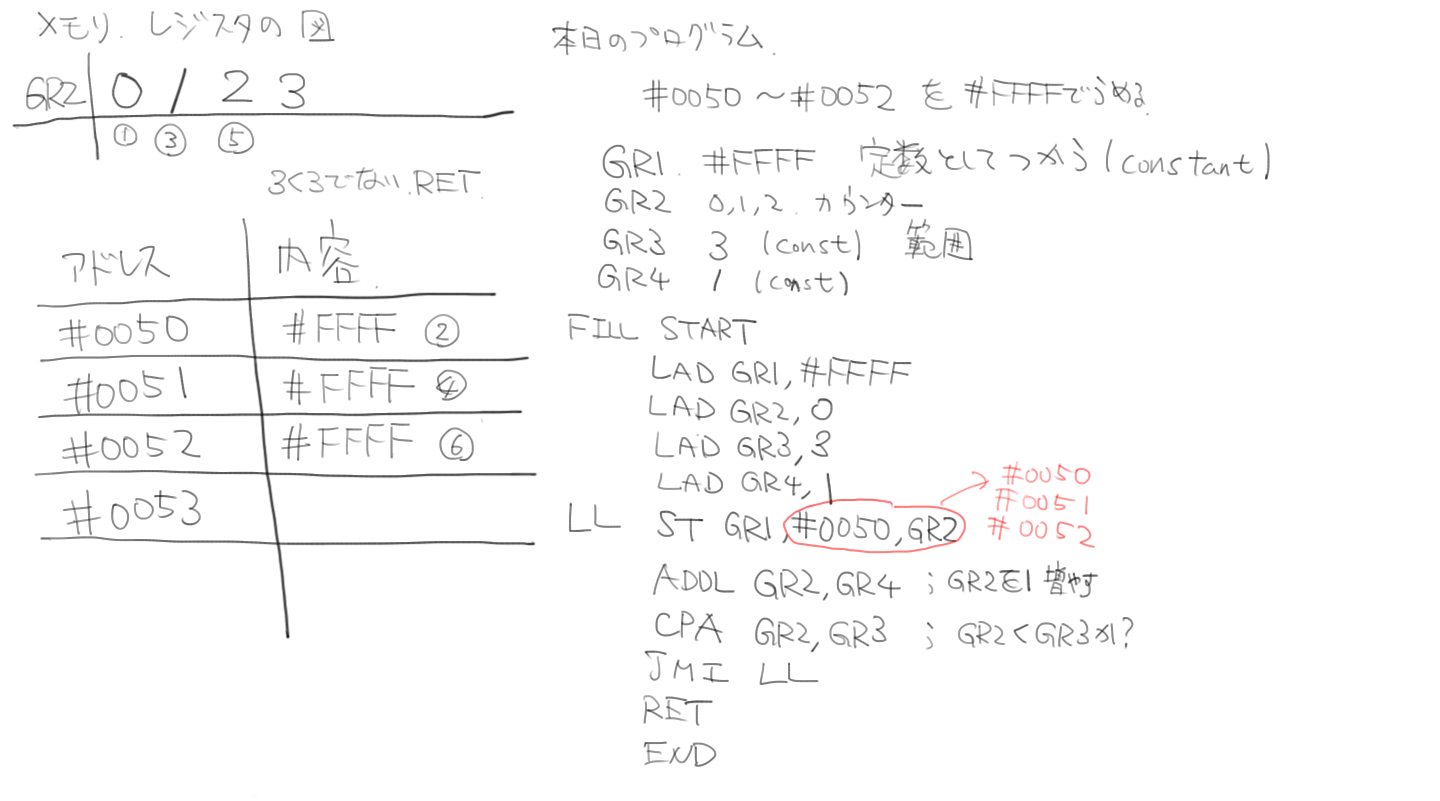 メモリ. レジスタの図
GR2 0 1 2 3
① ③ ⑤
3<3でない.RET.
アドレス 内容.
#0050 #FFFF ②
#0051 #FFFF ④
#0052 #FFFF ⑥
#0053
本日のプログラム.
#0050〜#0052 を #FFFFでうめる
GR1. #FFFF 定数としてつかう(constant)
GR2 0,1,2. カウンター
GR3 3 (const) 範囲
GR4 1 (const)
FILL START
LAD GR1,#FFFF
LAD GR2,0
LAD GR3,3
LAD GR4,1
LL ST GR1,#0050,GR2
#0050
#0051
#0052
ADDL GR2,GR4 ;GR2を1増やす
CPA GR2,GR3 ;GR2<GR3か?
JMI LL
RET
END